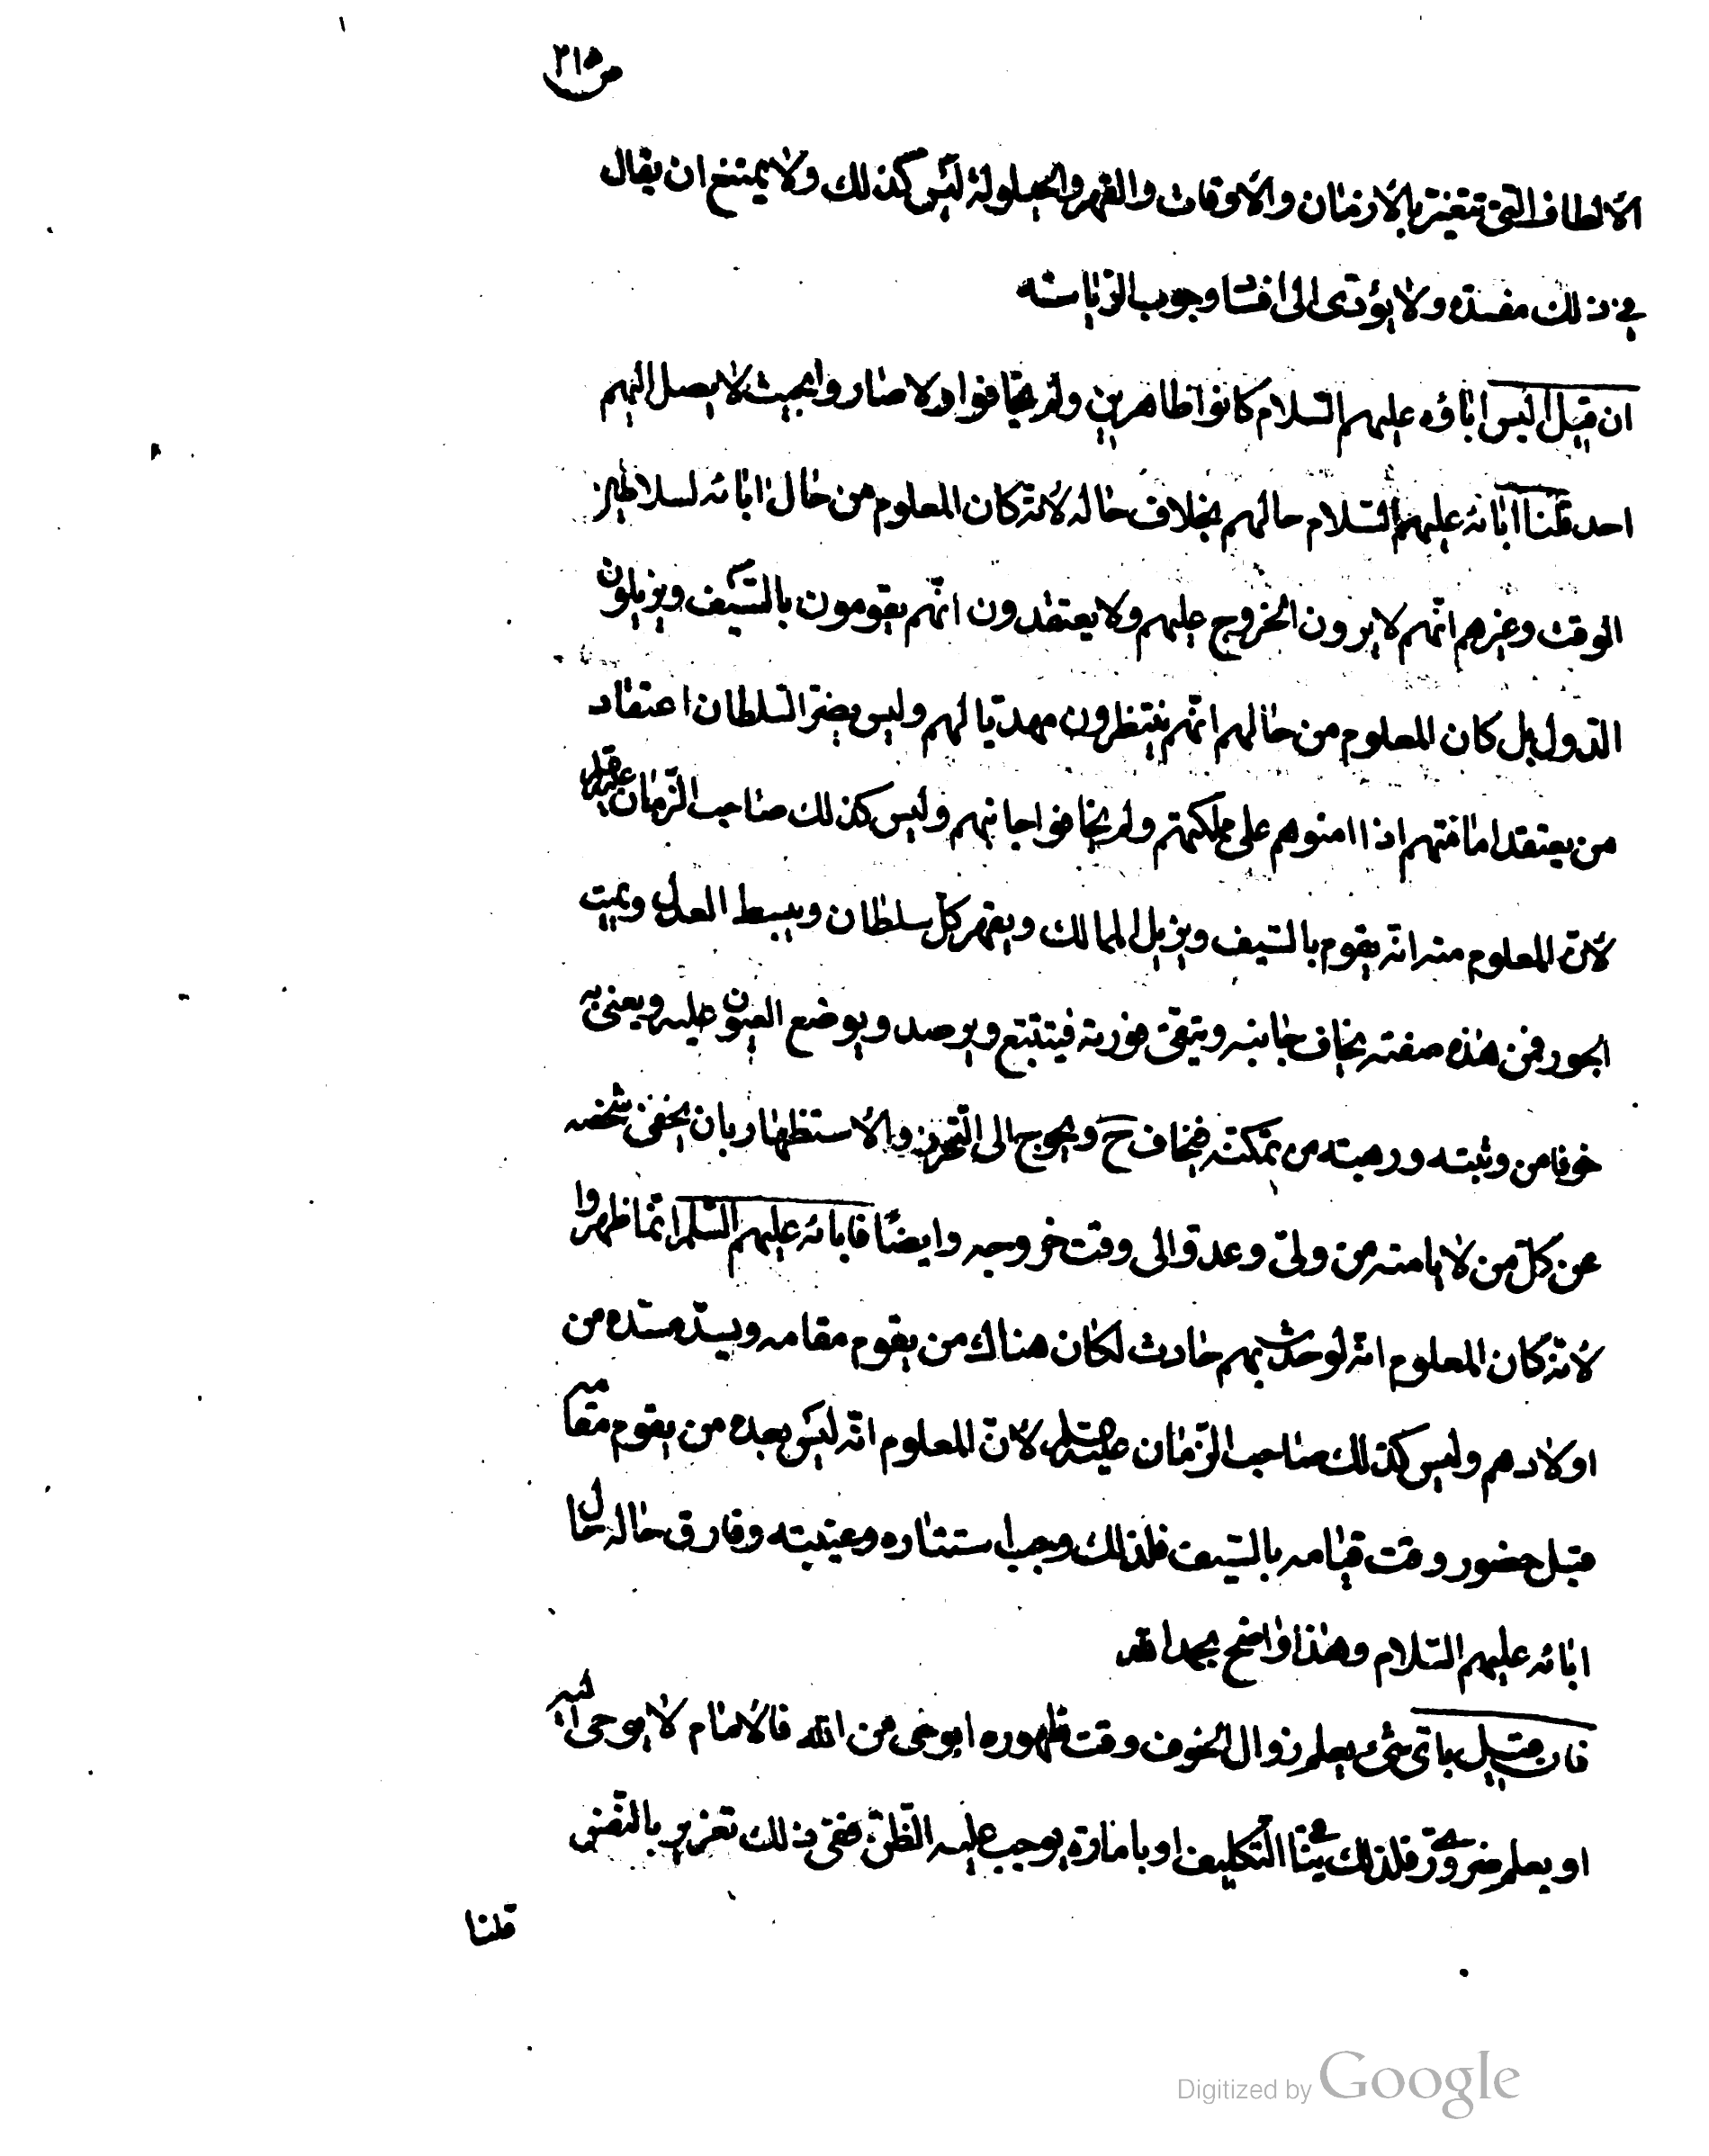 ص ٢١٥
الألطاف التى تتغير بالأزمان والأوقات والقهر والحيلولة ليس كذلك ولا يمتنع ان يقال
في ذلك مفسدة ولا يؤدى الى افساد وجوب الرياسه
ان قيل اليس اباؤه عليهم السلام كانوا ظاهرين ولم يخافوا ولا صاروا بحيث لا يصل اليهم
احد قلنا ابائه عليهم السلام حالهم بخلاف حاله لأنه كان المعلوم من حال ابائه لسلاطين
الوقت وغيرهم انهم لا يرون الخروج عليهم ولا يعتقدون انهم يقومون بالسيف ويزيلون
الدول بل كان المعلوم من حالهم انهم ينتظرون مهديا لهم وليس يضر السلطان اعتقاد
من يعتقد امامتهم اذا امنوهم على مملكتهم ولم يخافوا جانبهم وليس كذلك صاحب الزمان
لأن المعلوم منه انه يقوم بالسيف ويزيل الممالك ويقهر كل سلطان ويبسط العدل ويميت
الجور فمن هذه صفته يخاف جانبه ويتقى فورته فيتتبع ويرصد ويوضع العيون عليه ويعنى به
خوفا من وثبته ورهبته من تمكنه فيخاف ح ويحوج الى التحرز والأستظهار بان يخفى شخصه
عن كل من لا يامنه من ولى وعدو الى وقت خروجه وايضا فابائه عليهم السلم انما ظهروا
لأنه كان المعلوم انه لو حدث بهم حادث لكان هناك من يقوم مقامه ويسد مسده من
اولادهم وليس كذلك صاحب الزمان لأن المعلوم انه ليس بعده من يقوم مقامه
قبل حضور وقت قيامه بالسيف فلذلك وجب استتاره وغيبته وفارق حاله حال
ابائه عليهم السلام وهذا واضح بحمد الله
فان قيل باى شىء يعلم زوال الخوف وقت ظهوره ابوحى من الله فالأمام لا يوحى اليه
او بعلم ضرورى فلذلك ينافى التكليف او بامارة يوجب عليه الظن ففى ذلك تغرير بالنفس
قلنا
Digitized by Google